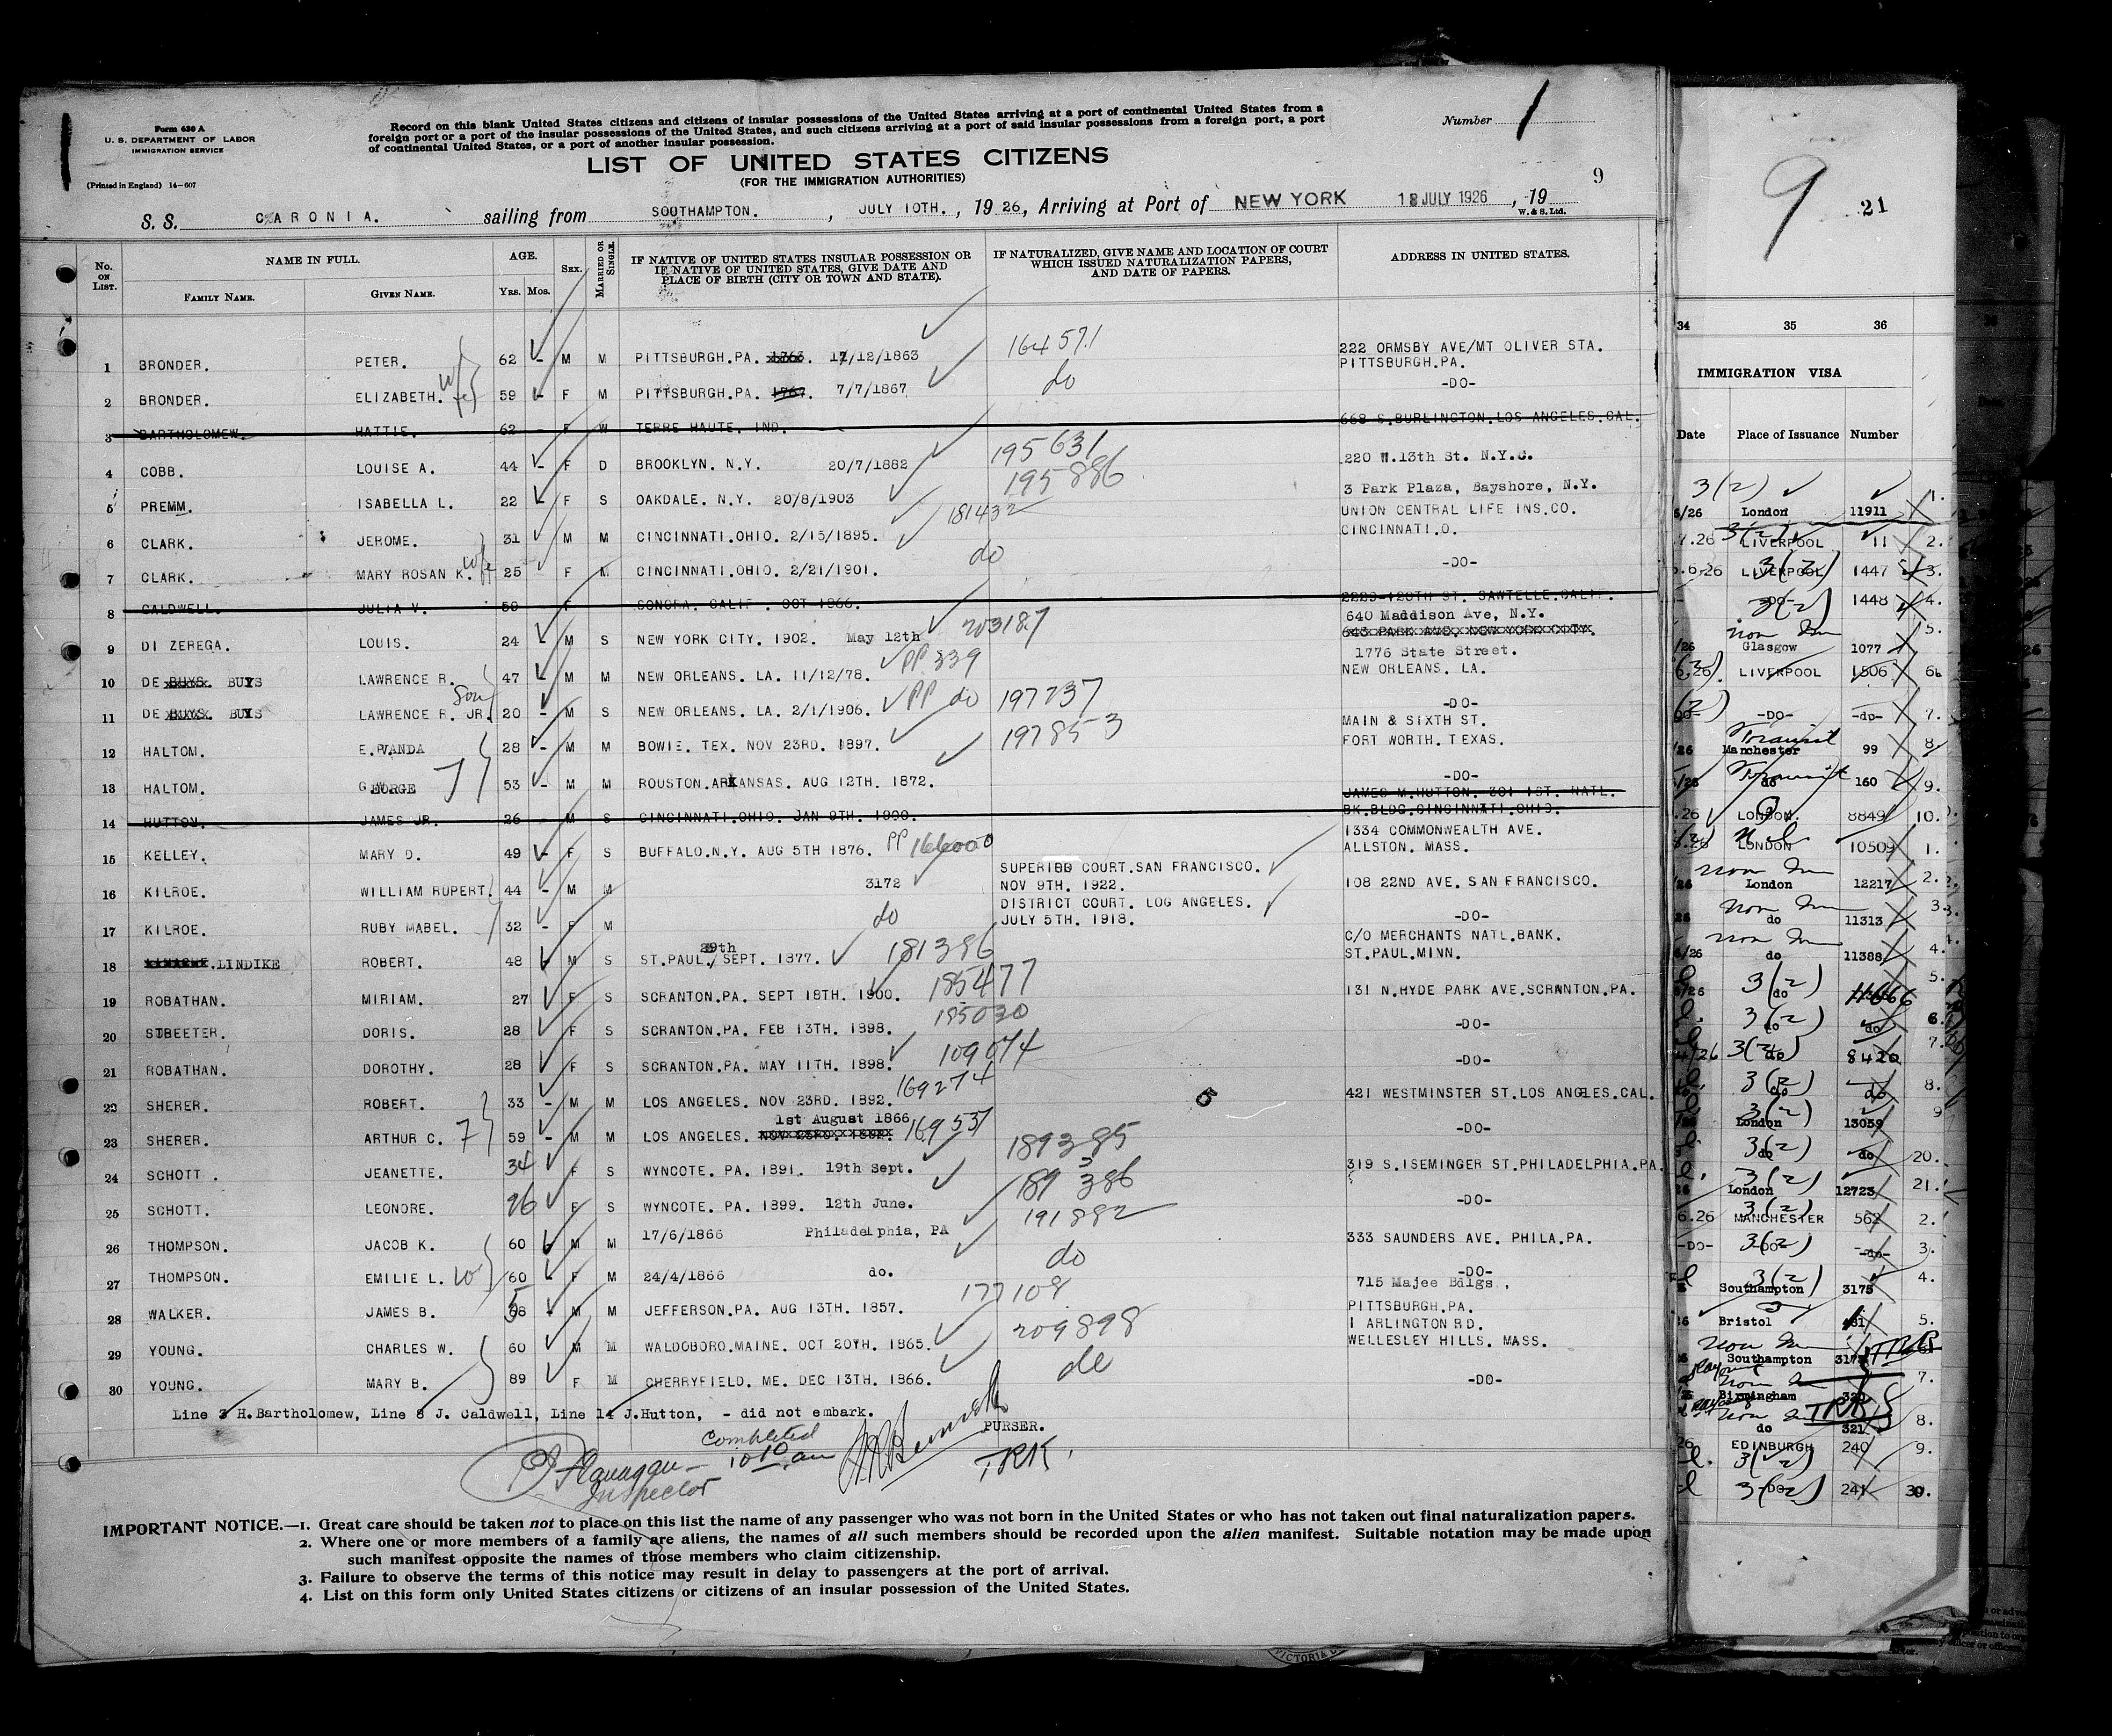 Form 630 A
U. S. DEPARTMENT OF LABOR
IMMIGRATION SERVICE
(Printed in England) 14-607
Record on this blank United States citizens and citizens of insular possessions of the United States arriving at a port of continental United States from a
foreign port or a port of the insular possessions of the United States, and such citizens arriving at a port of said insular possessions from a foreign port, a port
of continental United States, or a port of another insular possession.
Number 1
LIST OF UNITED STATES CITIZENS
(FOR THE IMMIGRATION AUTHORITIES)
9
S. S. CARONIA. sailing from SOUTHAMPTON. , JULY 10TH. , 19 26, Arriving at Port of NEW YORK 18 JULY 1926 , 19
W. & S. Ltd.
No. ON LIST. NAME IN FULL. FAMILY NAME. GIVEN NAME. AGE. YRS. MOS. SEX. MARRIED OR SINGLE. IF NATIVE OF UNITED STATES INSULAR POSSESSION OR IF NATIVE OF UNITED STATES, GIVE DATE AND PLACE OF BIRTH (CITY OR TOWN AND STATE). IF NATURALIZED, GIVE NAME AND LOCATION OF COURT WHICH ISSUED NATURALIZATION PAPERS, AND DATE OF PAPERS. ADDRESS IN UNITED STATES.
1 BRONDER. PETER. 62 - M M PITTSBURGH.PA. 1863. 17/12/1863 164571 222 ORMSBY AVE/MT OLIVER STA. PITTSBURGH.PA.
2 BRONDER. ELIZABETH. wife 59 - F M PITTSBURGH.PA. 1867. 7/7/1867 do -DO-
3 BARTHOLOMEW. HATTIE. 62 - F W TERRE HAUTE. IND. 668 S.BURLINGTON.LOS ANGELES.CAL.
4 COBB. LOUISE A. 44 - F D BROOKLYN. N.Y. 20/7/1882 195631 220 W.13th St. N.Y.C.
5 PREMM. ISABELLA L. 22 - F S OAKDALE. N.Y. 20/8/1903 195886 3 Park Plaza, Bayshore, N.Y.
6 CLARK. JEROME. 31 M M CINCINNATI.OHIO. 2/15/1895. 181432 UNION CENTRAL LIFE INS.CO. CINCINNATI.O.
7 CLARK. MARY ROSAN K. wife 25 F M CINCINNATI.OHIO. 2/21/1901. do -DO-
8 CALDWELL. JULIA V. 59 F SONORA. CALIF. OCT 1866. 2229-128TH ST. SAWTELLE.CALIF.
9 DI ZEREGA. LOUIS. 24 - M S NEW YORK CITY. 1902. May 12th 203187 640 Maddison Ave, N.Y. 643 PARK AVE. NEW YORK CITY.
10 DE BUYS. BUYS LAWRENCE R. 47 M M NEW ORLEANS. LA. 11/12/78. PP 339 1776 State Street. NEW ORLEANS. LA.
11 DE BUYS. BUYS LAWRENCE R. JR. Son 20 - M S NEW ORLEANS. LA. 2/1/1906. PP do 197737 -DO-
12 HALTOM. E.P.VANDA 28 - M M BOWIE. TEX. NOV 23RD. 1897. 197853 MAIN & SIXTH ST. FORT WORTH. TEXAS.
13 HALTOM. GEORGE 53 - M M ROUSTON.ARKANSAS. AUG 12TH. 1872. -DO-
14 HUTTON. JAMES JR. 26 - M S CINCINNATI.OHIO. JAN 9TH. 1900. JAMES M.HUTTON. 301 1ST. NATL. BK.BLDG.CINCINNATI.OHIO.
15 KELLEY. MARY D. 49 - F S BUFFALO.N.Y. AUG 5TH 1876. PP 166000 1334 COMMONWEALTH AVE. ALLSTON. MASS.
16 KILROE. WILLIAM RUPERT. 44 - M M 3172 SUPERIOR COURT.SAN FRANCISCO. NOV 9TH. 1922. 108 22ND AVE. SAN FRANCISCO.
17 KILROE. RUBY MABEL. 32 - F M do DISTRICT COURT. LOG ANGELES. JULY 5TH. 1918. -DO-
18 LINDIKE ROBERT. 48 - M S ST.PAUL. 29th SEPT. 1877. 181386 C/O MERCHANTS NATL.BANK. ST.PAUL.MINN.
19 ROBATHAN. MIRIAM. 27 F S SCRANTON.PA. SEPT 18TH. 1900. 185477 131 N.HYDE PARK AVE.SCRANTON.PA.
20 STREETER. DORIS. 28 F S SCRANTON.PA. FEB 13TH. 1898. 185030 -DO-
21 ROBATHAN. DOROTHY. 28 F S SCRANTON.PA. MAY 11TH. 1898. 109074 -DO-
22 SHERER. ROBERT. 33 - M M LOS ANGELES. NOV 23RD. 1892. 169274 421 WESTMINSTER ST.LOS ANGLES.CAL.
23 SHERER. ARTHUR C. 59 - M M LOS ANGELES. NOV 23RD. 1892. 1st August 1866 169537 -DO-
24 SCHOTT. JEANETTE. 34 F S WYNCOTE. PA. 1891. 19th Sept. 189385 319 S.ISEMINGER ST.PHILADELPHIA.PA.
25 SCHOTT. LEONORE. 26 F S WYNCOTE. PA. 1899. 12th June. 189386 -DO-
26 THOMPSON. JACOB K. 60 - M M 17/6/1866 Philadelphia, PA 191882 333 SAUNDERS AVE. PHILA.PA.
27 THOMPSON. EMILIE L. w 60 - F M 24/4/1866 do. do -DO-
28 WALKER. JAMES B. 68 - M M JEFFERSON.PA. AUG 13TH. 1857. 177108 715 Majee Bdlgs., PITTSBURGH.PA.
29 YOUNG. CHARLES W. 60 M M WALDOBORO.MAINE. OCT 20TH. 1865. 209898 1 ARLINGTON RD. WELLESLEY HILLS. MASS.
30 YOUNG. MARY B. 89 F M CHERRYFIELD. ME. DEC 13TH. 1866. do -DO-
Line 3 H.Bartholomew, Line 8 J. Caldwell, Line 14 J.Hutton, - did not embark.
PURSER.
Completed
10 10 am
Flanagan
Inspector
TRK.
IMPORTANT NOTICE.—1. Great care should be taken not to place on this list the name of any passenger who was not born in the United States or who has not taken out final naturalization papers.
2. Where one or more members of a family are aliens, the names of all such members should be recorded upon the alien manifest. Suitable notation may be made upon
such manifest opposite the names of those members who claim citizenship.
3. Failure to observe the terms of this notice may result in delay to passengers at the port of arrival.
4. List on this form only United States citizens or citizens of an insular possession of the United States.
9
21
34 35 36
IMMIGRATION VISA
Date Place of Issuance Number
London 11911 1.
LIVERPOOL 11 2.
LIVERPOOL 1447 3.
-DO- 1448 4.
Glasgow 1077 5.
LIVERPOOL 1506 6
-DO- -do- 7.
Transit
Manchester 99 8
Transit
do 160 9.
LONDON. 8849 10.
LONDON 10509 1.
London 12217 2.
do 11313 3.
do 11388 4.
do 5.
do do 6.
do 8420 7.
do do 8.
London 13059 9
do do 20.
London 12723 21.
MANCHESTER 562 2.
-DO- -do- 3.
Southampton 3175 4.
Bristol 5.
Southampton
Birmingham 320 7.
do 321 8.
EDINBURGH 240 9.
-DO- 241 30.